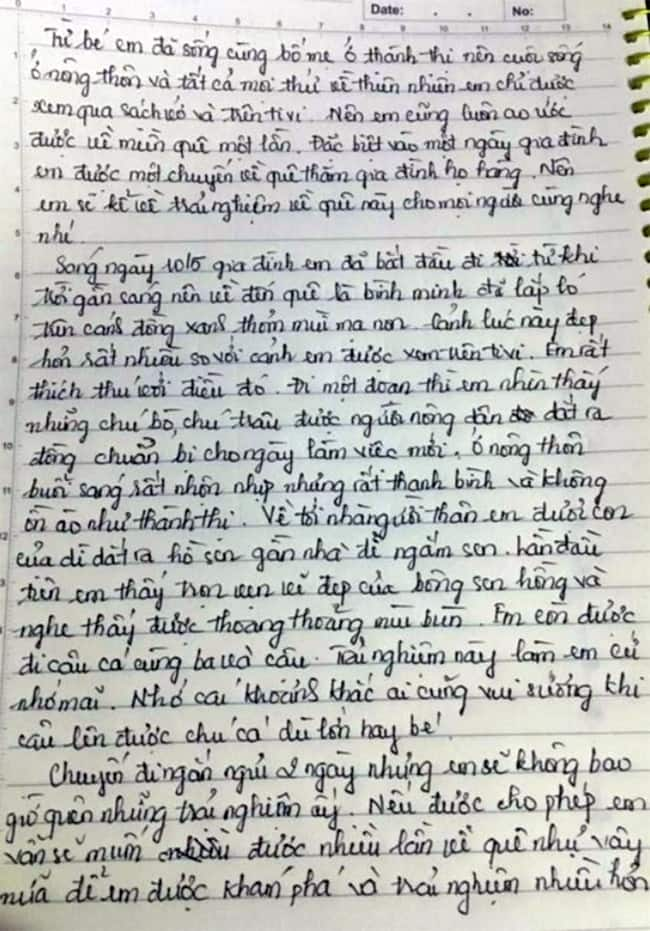 Date: No:
Từ bé em đã sống cùng bố mẹ ở thành thị nên cuôc sống
ở nông thôn và tất cả mọi thứ về thiên nhiên em chỉ được
xem qua sách vở và trên tivi. Nên em cũng luôn ao ước
được về miền quê một lần. Đặc biệt vào một ngày gia đình
em được một chuyến về quê thăm gia đình họ hàng. Nên
em sẽ kể về trải nghiệm về quê này cho mọi người cùng nghe
nhé.
Sáng ngày 10/5 gia đình em đã bắt đầu đi từ khi
trời gần sang nên về đến quê là bình minh đã lấp ló
trên cánh đồng xanh thơm mùi mạ non. Cảnh lúc này đẹp
hơn rất nhiều so với cảnh em được xem trên tivi. Em rất
thích thú với điều đó. Đi một đoạn thì em nhìn thấy
những chú bò, chú trâu được người nông dân dắt ra
đồng chuẩn bị cho ngày làm việc mới. Ở nông thôn
buổi sáng rất nhộn nhịp nhưng rất thanh bình và không
ồn ào như thành thị. Về tới nhà người thân em được con
của dì dắt ra hồ sen gần nhà để ngắm sen. Lần đầu
tiên em thấy trọn vẹn vẻ đẹp của bông sen hồng và
nghe thấy được thoang thoảng mùi bùn. Em còn được
đi câu cá cùng ba và cậu. Trải nghiệm này làm em cứ
nhớ mãi. Nhớ cái khoảnh khắc ai cũng vui sướng khi
câu lên được chú cá dù lớn hay bé!
Chuyến đi ngắn ngủi 2 ngày nhưng em sẽ không bao
giờ quên những trải nghiệm ấy. Nếu được cho phép em
vẫn sẽ muốn được nhiều lần về quê như vậy
nữa để em được khám phá và trải nghiệm nhiều hơn